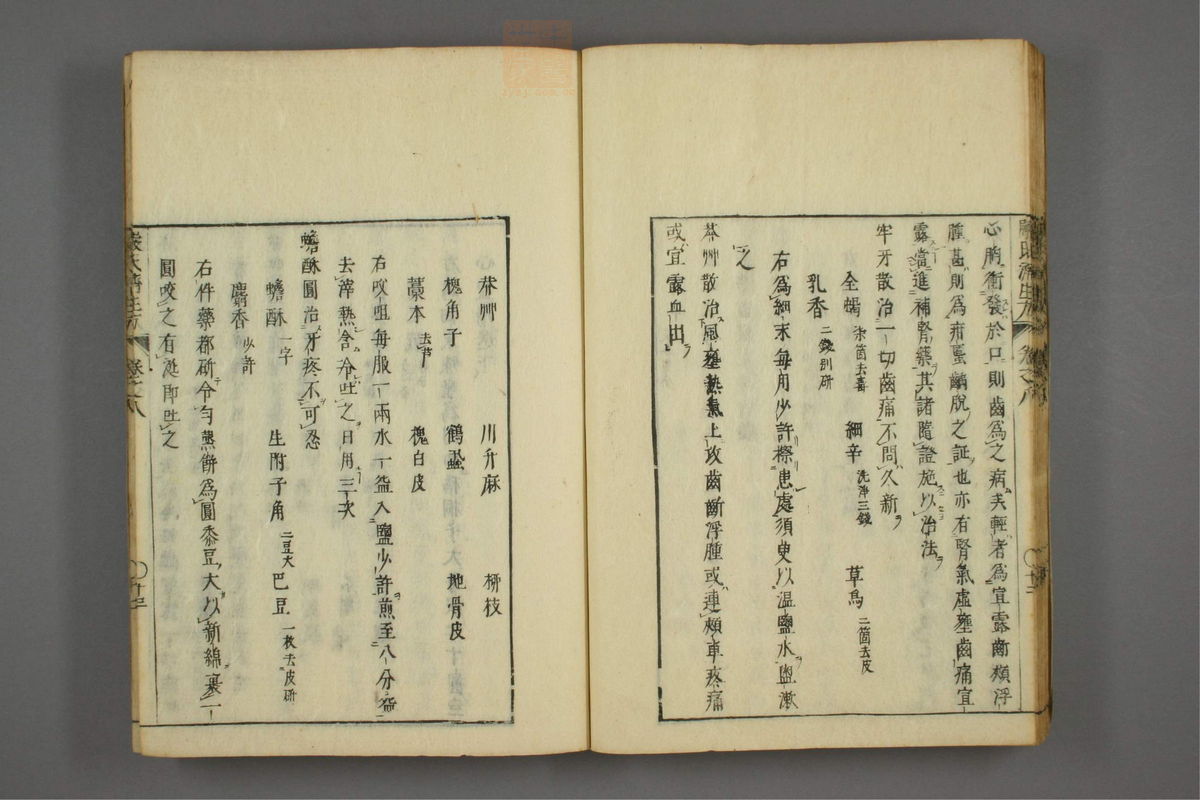 心胸衝發於口則齒爲之病矣輕者爲宣露齗頰浮
腫甚則爲疳䘌齲脫之証也亦有腎氣虛壅齒痛宣
露當進補腎藥其諸隨證施以治法
牢牙散治一切齒痛不問久新
全蝎 去毒 細辛 洗淨三錢 草烏 二箇去皮
乳香 二錢別研
右爲細末每用少許擦患處須臾以溫鹽水盥漱
之
莽艸散治風壅熱氣上攻齒齗浮腫或連頰車疼痛
或宣露血出
嚴氏濟生方 卷之八 十二
莽艸 川升麻 柳枝
槐角子 鶴蝨 地骨皮
藁本 去芦 槐白皮
右㕮咀每服一兩水一盞入鹽少許煎至八分盞
去滓熱含冷吐之日用三次
蟾酥圓治牙疼不可忍
蟾酥 一字 生附子角 二豆大 巴豆 一枚去皮研
麝香 少許
右件藥都研令勻蒸餅爲圓黍豆大以新綿裹一
圓咬之有涎即吐之
嚴氏濟生方 卷之八 十三